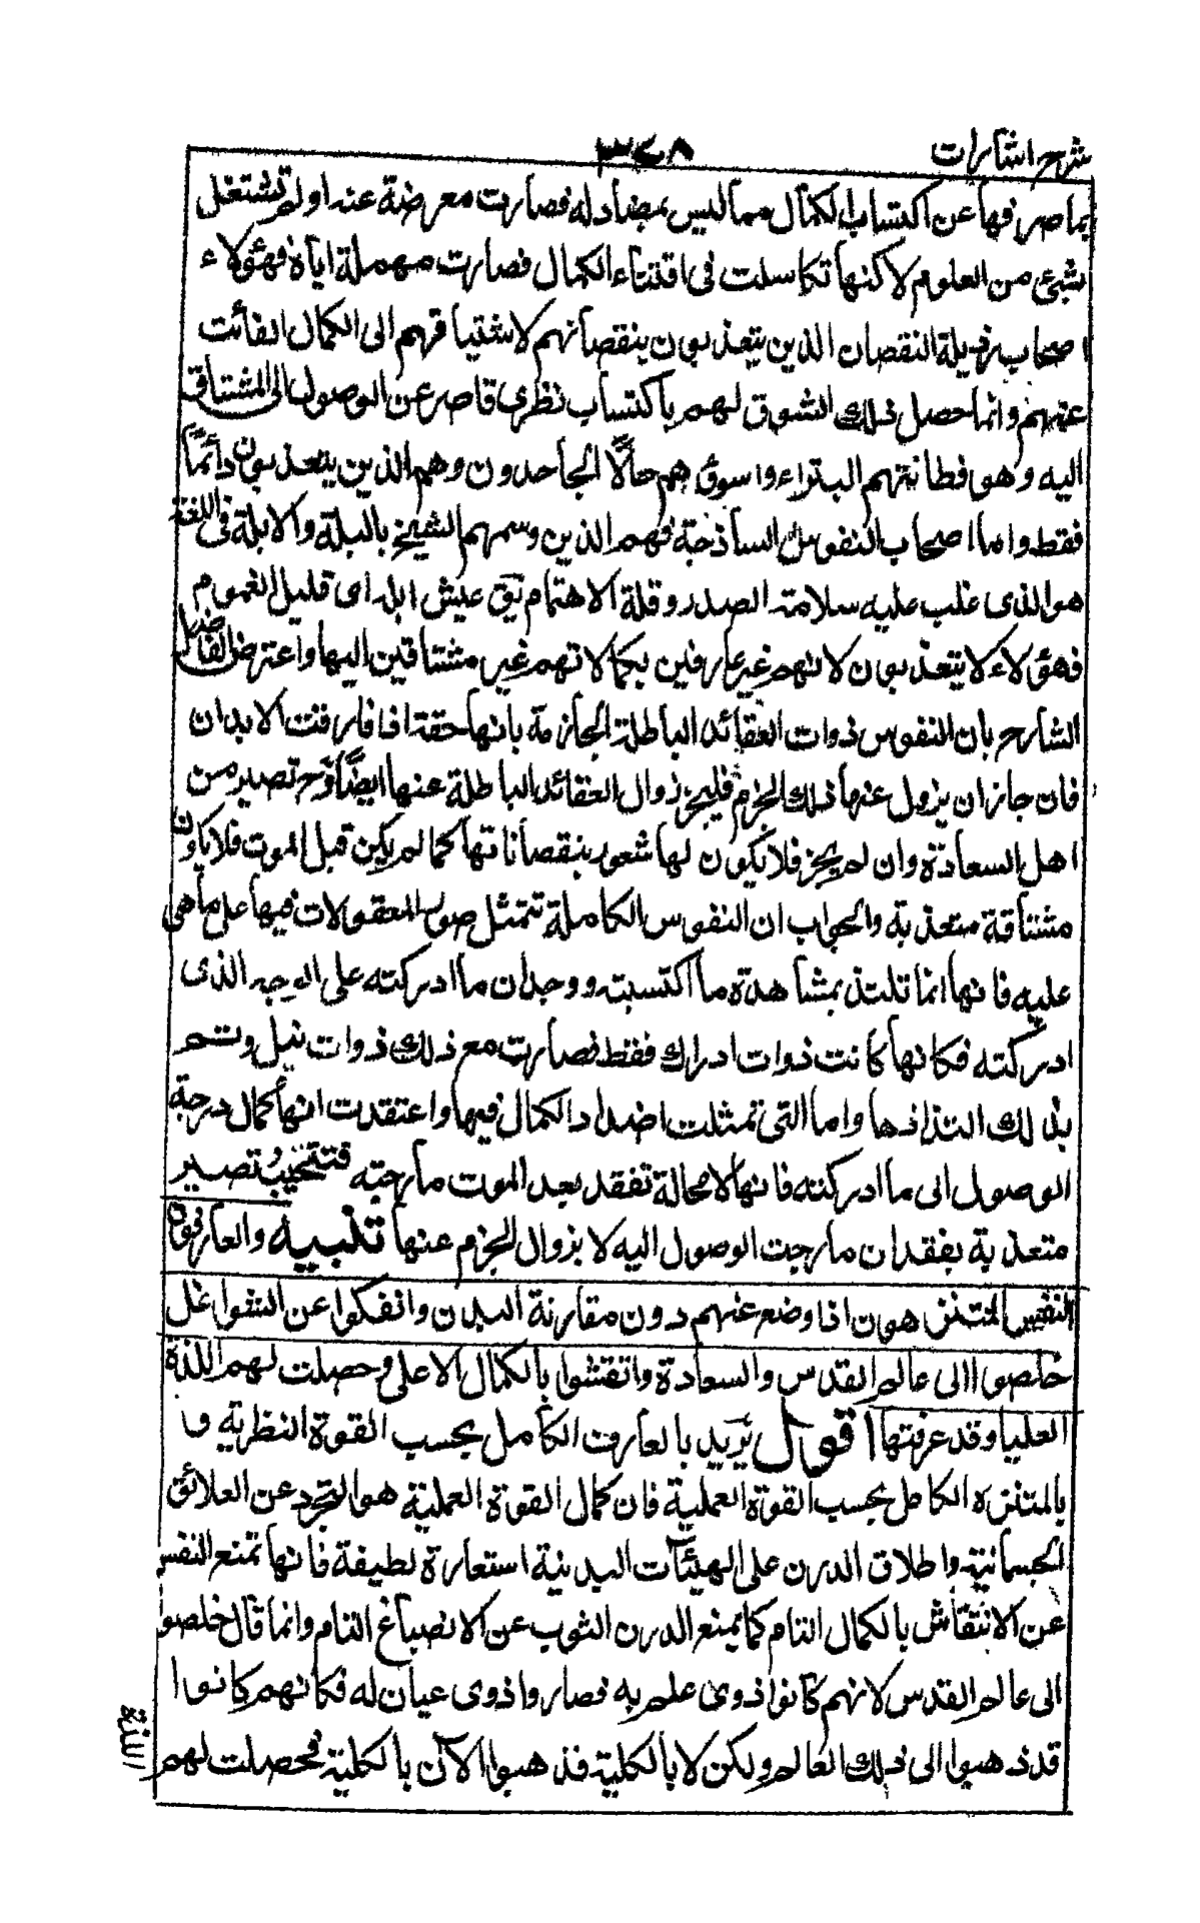 شرح اشارات
٣٤٨
بما صرفها عن اكتساب الكمال مما ليس بمضاد له فصارت معرضة عنه او لم تشتغل
بشئ من العلوم لاكنها تكاسلت فى اقتناء الكمال فصارت مهملة اياه فهؤلاء
اصحاب رذيلة النقصان الذين يتعذبون بنقصانهم لاشتياقهم الى الكمال الفائت
عنهم وانما حصل ذلك الشوق لهم باكتساب نظرى قاصر عن الوصول الى المشتاق
اليه وهو فطانتهم البتراء واسوؤهم حالًا الجاحدون وهم الذين يتعذبون دائمًا
فقط واما اصحاب النفوس الساذجة فهم الذين وسمهم الشيخ بالبله والابله فى اللغة
هو الذى غلب عليه سلامة الصدر وقلة الاهتمام يق عيش ابله اى قليل الغموم
فهؤلاء لا يتعذبون لانهم غير عارفين بكمالاتهم غير مشتاقين اليها واعترض الفاضل
الشارح بان النفوس ذوات العقائد الباطلة الجازمة بانها حقة اذا فارقت الابدان
فان جاز ان يزول عنها ذلك الجزم فليجز زوال العقائد الباطلة عنها ايضًا وح تصير من
اهل السعادة وان لم يجز فلا يكون لها شعور بنقصاناتها كما لم يكن قبل الموت فلا يكون
مشتاقة متعذبة والجواب ان النفوس الكاملة تتمثل صور المعقولات فيها على ما هى
عليه فانها انما تلتذ بمشاهدة ما اكتسبته ووجدان ما ادركته على الوجه الذى
ادركته فكانها كانت ذوات ادراك فقط فصارت مع ذلك ذوات نيل وتم
بذلك التذاذها واما التى تمثلت اضداد الكمال فيها واعتقدت انها كمال درجة
الوصول الى ما ادركته فانها لا محالة تفقد بعد الموت ما رجته فتخيب تصير
متعذبة بفقدان ما رجت الوصول اليه لا بزوال الجزم عنها تنبيه والعارفون
المتنزهون اذا وضع عنهم درن مقارنة البدن وانفكوا عن الشواغل
خلصوا الى عالم القدس والسعادة وانتقشوا بالكمال الاعلى وحصلت لهم اللذة
العليا وقد عرفتها اقول يريد بالعارف الكامل بحسب القوة النظرية و
بالمتنزه الكامل بحسب القوة العملية فان كمال القوة العملية هو التجرد عن العلائق
الجسمانية واطلاق الدرن على الهيئات البدنية استعارة لطيفة فانها تمنع النفس
عن الانتقاش بالكمال التام كما يمنع الدرن الثوب عن الانصباغ التام وانما قال خلصوا
الى عالم القدس لانهم كانوا ذوى علم به فصاروا ذوى عيان له فكانهم كانوا
قد ذهبوا الى ذلك العالم ولكن لا بالكلية فذهبوا الآن بالكلية فحصلت لهم
اللذة